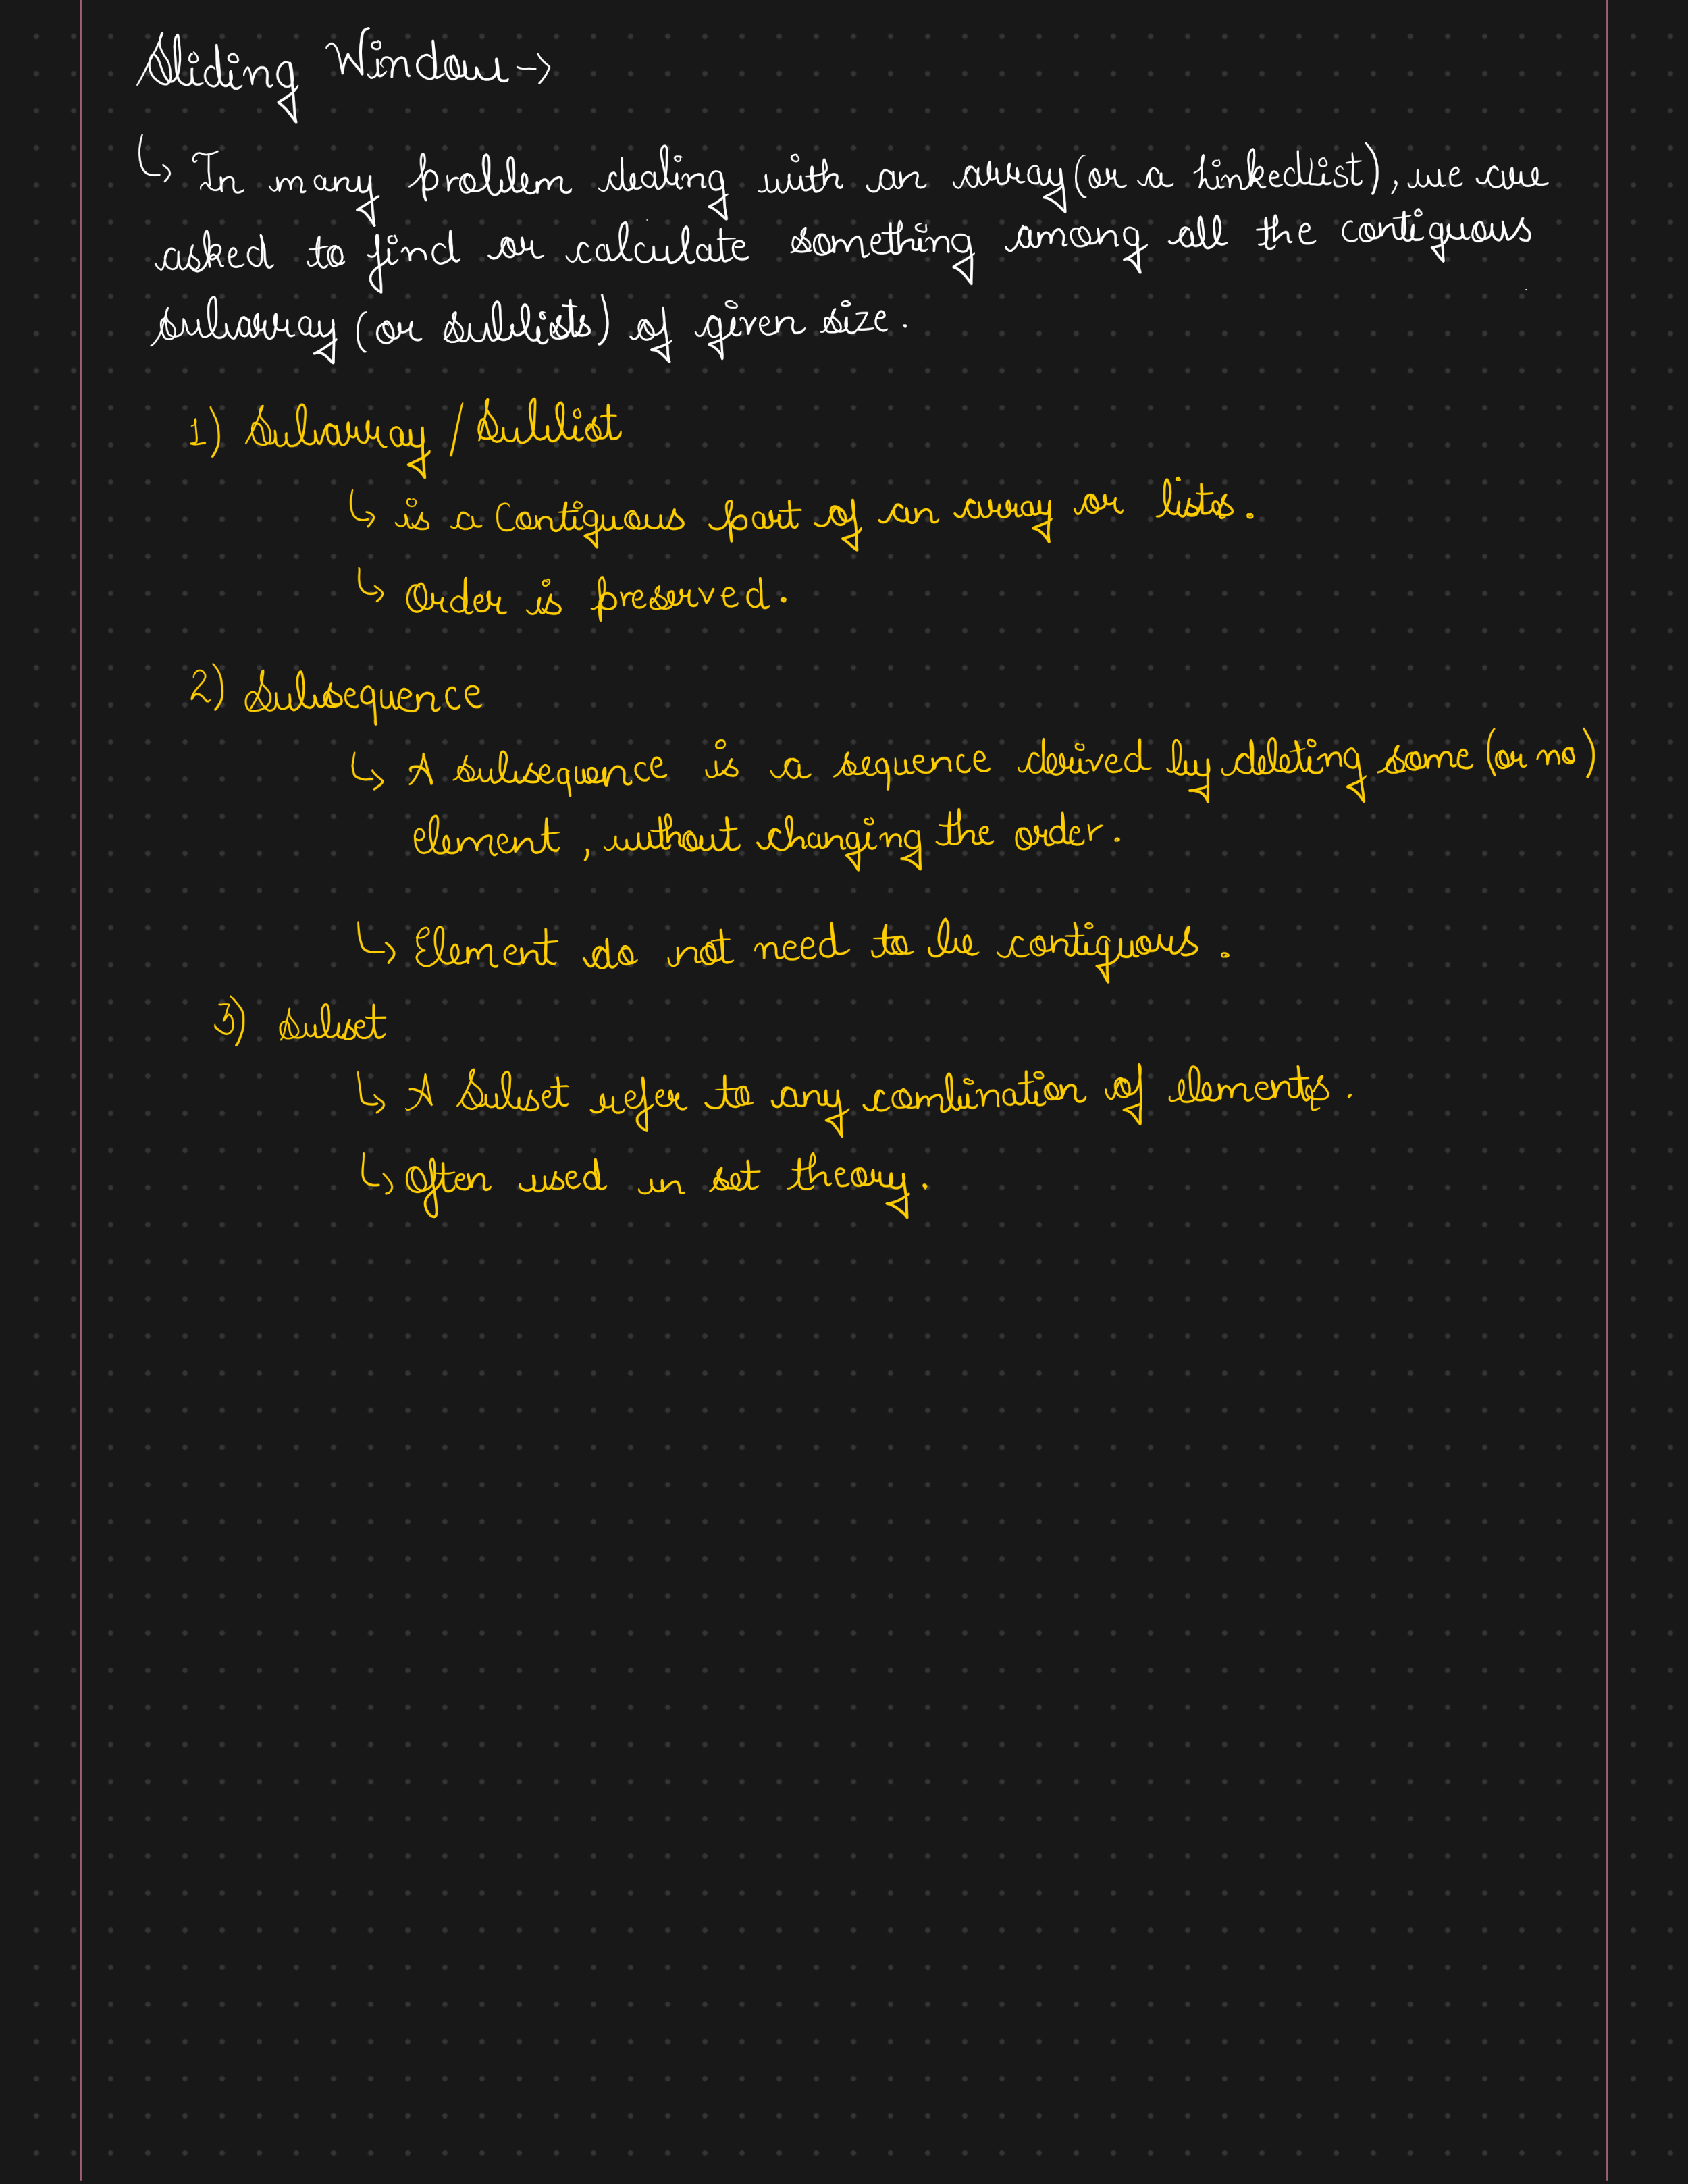 Sliding Window →
↳ In many problem dealing with an array (or a LinkedList), we are
asked to find or calculate something among all the contiguous
subarray (or sublists) of given size.
1) Subarray / Sublist
↳ is a Contiguous part of an array or lists.
↳ Order is preserved.
2) Subsequence
↳ A subsequence is a sequence derived by deleting some (or no)
element, without changing the order.
↳ Element do not need to be contiguous.
3) Subset
↳ A Subset refer to any combination of elements.
↳ Often used in set theory.